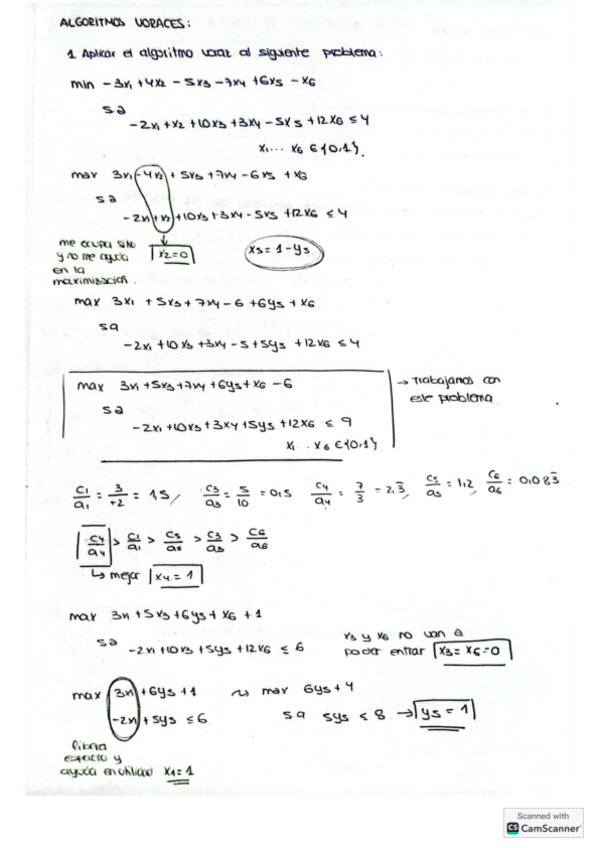 ALGORITMOS VORACES:
1. Aplicar el algoritmo voraz al siguiente problema:
min -3x₁ + 4x₂ - 5x₃ - 7x₄ + 6x₅ - x₆
sa
-2x₁ + x₂ + 10x₃ + 3x₄ - 5x5 + 12x₆ ≤ 4
x₁... x₆ ∈ {0,1}.
max 3x₁ - 4x₂ + 5x₃ + 7x₄ - 6x₅ + x₆
sa
-2x₁ + x₂ + 10x₃ + 3x₄ - 5x₅ + 12x₆ ≤ 4
me ocupa sitio
y no me ayuda
en la
maximización.
x₂=0
x₅ = 1 - y₅
max 3x₁ + 5x₃ + 7x₄ - 6 + 6y₅ + x₆
sa
-2x₁ + 10x₃ + 3x₄ - 5 + 5y₅ + 12x₆ ≤ 4
max 3x₁ + 5x₃ + 7x₄ + 6y₅ + x₆ - 6
sa
-2x₁ + 10x₃ + 3x₄ + 5y₅ + 12x₆ ≤ 9
x₁... x₆ ∈ {0,1}
→ Trabajamos con
este problema
c₁/a₁ = 3/+2 = 1,5, c₃/a₃ = 5/10 = 0,5 c₄/a₄ = 7/3 = 2,3̅, c₅/a₅ = 1,2, c₆/a₆ = 0,083̅
c₄/a₄ > c₁/a₁ > c₅/a₅ > c₃/a₃ > c₆/a₆
↳ mejor x₄ = 1
max 3x₁ + 5x₃ + 6y₅ + x₆ + 1
sa
-2x₁ + 10x₃ + 5y₅ + 12x₆ ≤ 6
x₃ y x₆ no van a
poder entrar x₃ = x₆ = 0
max 3x₁ + 6y₅ + 1 ~> max 6y₅ + 4
-2x₁ + 5y₅ ≤ 6 sa 5y₅ ≤ 8 → y₅ = 1
libera
espacio y
ayuda en utilidad x₁ = 1
Scanned with
CS CamScanner